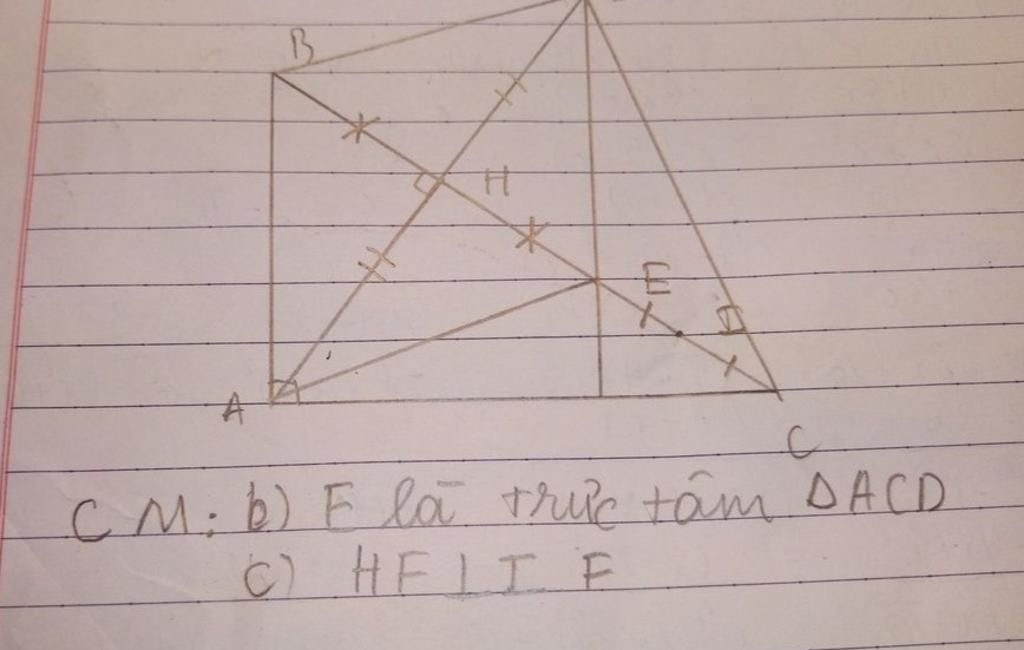 B
H
E
I
A
C
CM: b) E là trực tâm ΔACD
c) HF ⊥ IF